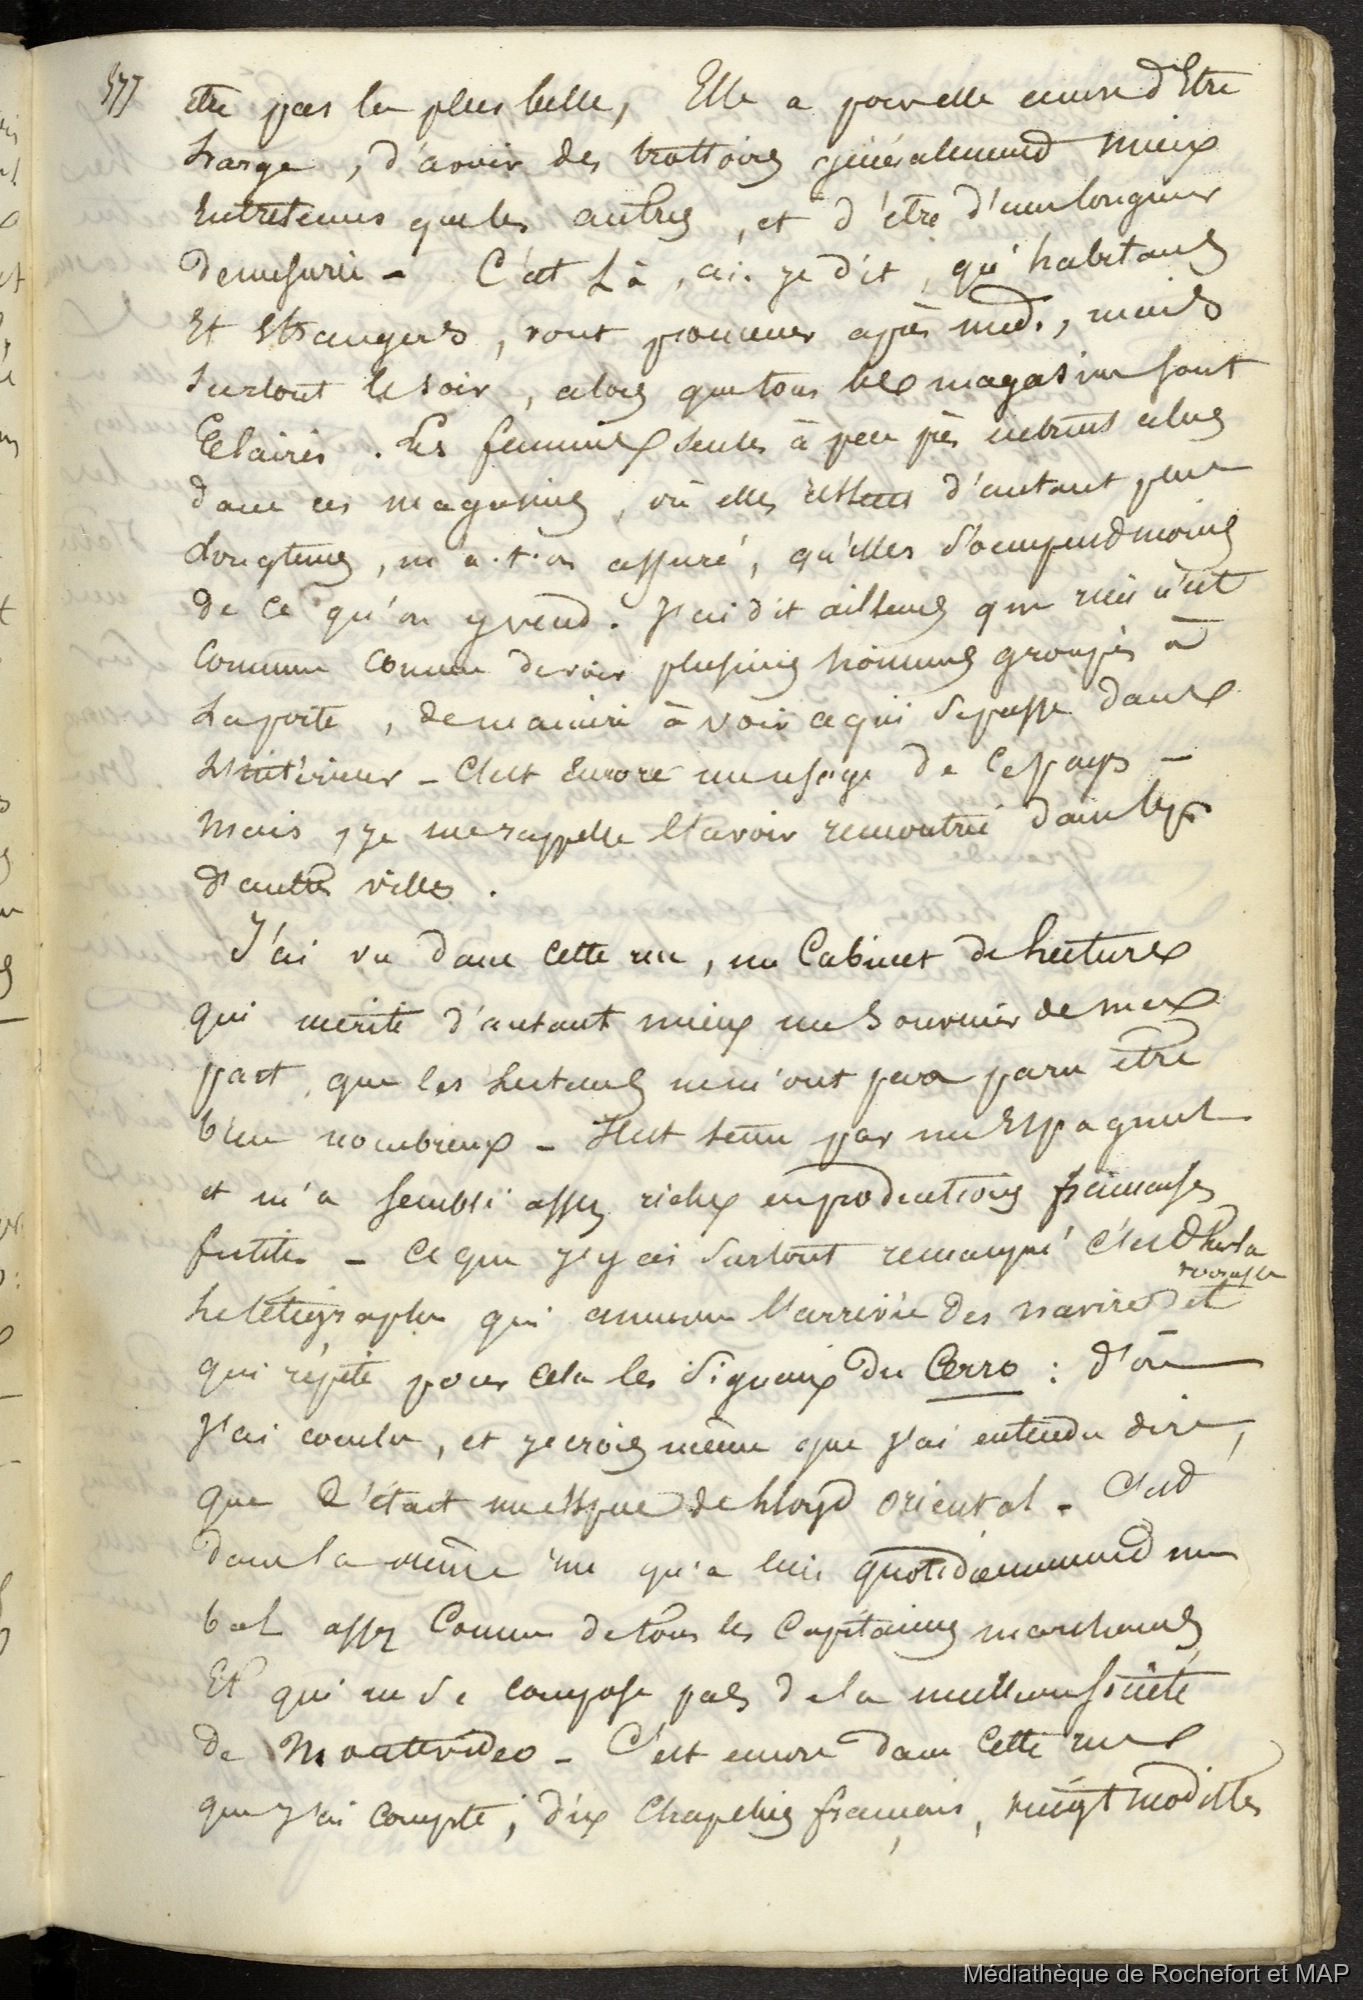 577
etre pas la plus belle, Elle a pour elle encore d'Etre
Large, d'avoir des trottoirs généralement mieux
Entretenus que les autres, et d'être d'une longueur
demesurée - C'est Là, ai-je dit, qu'habitans
Et Etrangers, vont promener après midi, mais
surtout le soir, alors que tous les magasins sont
Eclairés. Les femmes seules à peu près entrent alors
dans ces magasins, où elles restent d'autant plus
longtems, m'a-t-on assuré, qu'elles s'occupent moins
de ce qu'on y vend. J'ai dit ailleurs que rien n'est
Commun comme de voir plusieurs hommes groupés à
La porte, de maniere à voir ce qui se passe dans
L'intérieur - C'est encore un usage de ce pays -
Mais, je me rappelle l'avoir rencontré dans
d'autres villes.
J'ai vu dans cette rue, un Cabinet de Lecture
qui mérite d'autant mieux un souvenir de ma
part, que les Lecteurs ne m'ont pas paru être
bien nombreux - Il est tenu par un Espagnol
et m'a semblé assez riche en productions françaises
futiles - Ce que j'y ai surtout remarqué c'est sur la
terrasse
Le télégraphe qui annonce l'arrivée des navires et
qui répète pour cela les signaux du Cerro : d'où
j'ai conclu, et je crois même que j'ai entendu dire,
que c'était une espece de Lloyd oriental - C'est
dans la même rue qu'a lieu quotidiennement un
bal assez Connu de tous les Capitaines marchands,
Et qui ne se compose pas de la meilleure société
de Montevideo - C'est encore dans cette rue
que j'ai compté, dix Chapeliers français, vingt modistes
Médiathèque de Rochefort et MAP